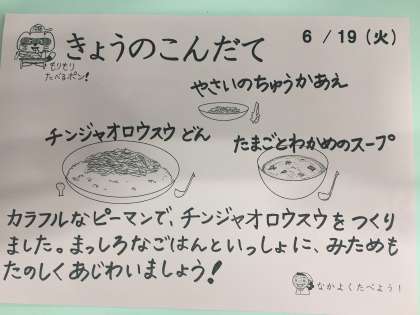 きょうのこんだて
6/19(火)
もりもり
たべるポン!
やさいのちゅうかあえ
チンジャオロウスウ どん
たまごとわかめのスープ
カラフルなピーマンで、チンジャオロウスウをつくり
ました。まっしろなごはんといっしょに、みためも
たのしくあじわいましょう!
なかよくたべよう!